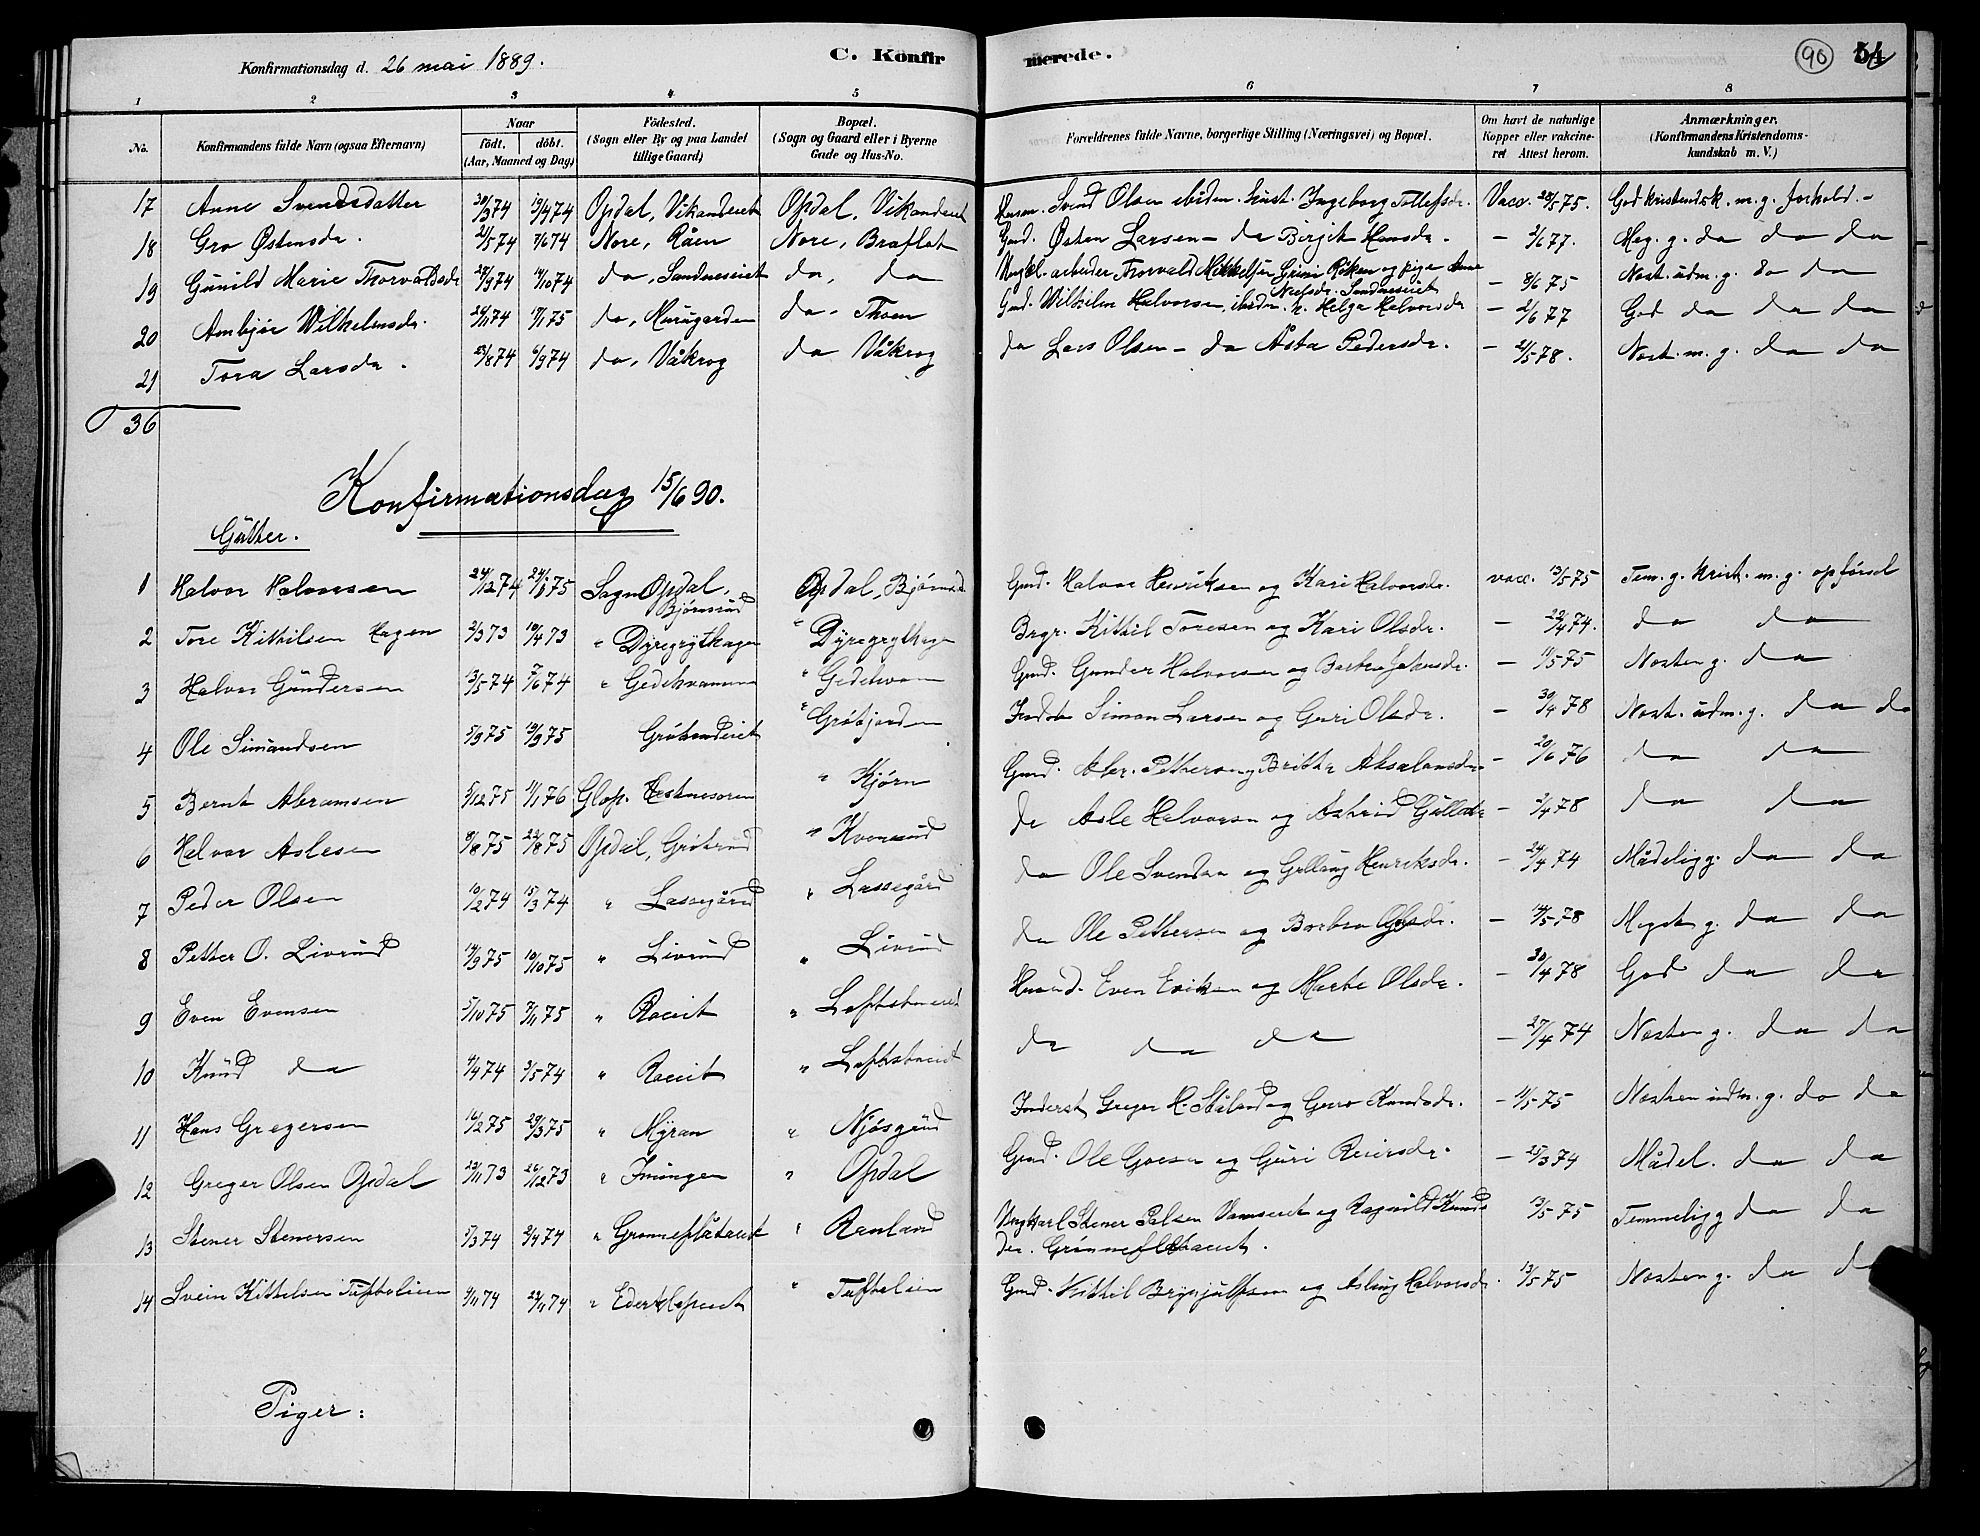 Konfirmationsdag d. 26 mai 1889.
C. Konfir
merede.
90
1 2 3 4 5 6 7 8
No. Konfirmandens fulde Navn (ogsaa Efternavn) Naar födt. döbt. (Aar, Maaned og Dag) Födested. (Sogn eller By og paa Landet tillige Gaard) Bopæl. (Sogn og Gaard eller i Byerne Gade og Hus-No. Forældrenes fulde Navne, borgerlige Stilling (Næringsvei) og Bopæl. Om havt de naturlige Kopper eller vakcineret Attest herom. Anmærkninger. (Konfirmandens Kristendomskundskab m. V.)
17 Anne Svendsdatter 30/3 74 19/4 74 Opdal, Vikandeiet Opdal, Vikandeiet Husm. Svend Olsen ibiden. hust. Ingeborg Tollefsdr. Vacc. 28/5 75. God kristendsk. m. g. forhold.
18 Gro Østensdr. 21/5 74 7/6 74 Nore, Råen Nore, Braflat Gmd. Østen Larsen - do Birgit Hansdr. - 2/6 77. Meg. g. do do do
19 Gunild Marie Thorvaldsdr 28/9 74 14/10 74 do, Sandneseiet do, do Ungkl. arbeider Thorvald Mikkelsen Grini Røken og pige Anne Nielsdr. Sandneseiet - 8/6 75 Nost. udm. g. do do
20 Ambjør Vilhelmsdr. 24/11 74 17/1 75 do, Murugarden do. Thoen Gmd. Vilhelm Halvorsen, ibidn. h. Helga Halvorsdr - 2/6 77 God do do do
21 Tora Larsdr. 23/8 74 6/9 74 do, Våkrog do Våkrog do Lars Olsen - do Åsta Pedersdr. - 2/5 78. Nost. m. g. do do
36
Konfirmationsdag 15/6 90.
Gutter.
1 Halvor Halvorsen 24/12 74 24/1 75 Sogn Opdal, Bjørnerud Opdal, Bjørnerud Gmd. Halvor Henriksen og Kari Halvorsdr. vacc. 13/5 75 Tem. g. krist. m. g. opførsel
2 Tore Kittilsen Hagen 2/3 73 10/4 73 " Dyregrythagen " Dyregrythagen Brgr. Kittil Toresen og Kari Olsdr. - 22/4 74. do do
3 Halvor Gundersen 13/5 74 7/6 74 " Gedehvammen " Gedehvam Gmd. Gunder Halvorsen og Barbro Johnsdr. - 11/5 75 Nosten g. do
4 Ole Simundsen 5/9 75 19/9 75 Gråbandeiet " Gråtjorden Inderst Simon Larsen og Guri Olsdr. - 30/4 78 Nost. udm. g. do do
5 Bernt Abramsen 5/12 75 11/1 76 Glop. Vestnesoren " Kjørn Gmd. Abr. Petterson og Britta Absalonsdr - 20/6 76 do do
6 Halvor Aslesen 8/8 75 22/8 75 Opdal, Gråtrud " Kvonerud do Asle Halvorsen og Astrid Gullsdr - 2/4 78 do do
7 Peder Olsen 10/2 74 15/3 74 " Lassegård " Lassegård do Ole Svendsen og Gullaug Henriksdr. - 24/3 74 Mådelig g. do do
8 Petter O. Livrud 14/9 75 10/10 75 " Livrud " Livrud do Ole Pettersen og Barbra Olsdr. - 14/5 78 Meget g. do do
9 Even Evensen 5/10 75 7/11 75 " Raeiet " Loftsbaeiet Husmd. Even Eriksen og Marte Olsdr. - 30/4 78 God do do
10 Knud do 4/4 74 3/5 74 " Raeiet " Loftsbaeiet do do do - 27/4 74 Nosten g. do do
11 Hans Gregersen 16/2 75 29/3 75 " Myran " Njøsgrud Inderst Greger H. Ståland og Guro Knudsdr. - 11/5 75 Nosten udm. g. do do
12 Greger Olsen Opdal 29/11 73 26/12 73 " Imingen " Opdal Gmd. Ole Goesen og Guri Reiersdr. - 25/3 74 Mådel. do do
13 Stener Stenersen 5/3 74 3/4 74 " Grønneflåtaeiet " Ranland Ungkarl Stener Palsen Vamseiet og Ragnild Knuds dr. Grønneflåtaeiet. 13/5 75 Temmelig g do do
14 Svein Kittelsen Tuftelien 9/11 74 29/11 74 " Ederklepeiet " Tuftelien Gmd. Kittil Brynjulfsen og Aslaug Halvorsdr. 13/5 75 Nosten g. do do
Piger: